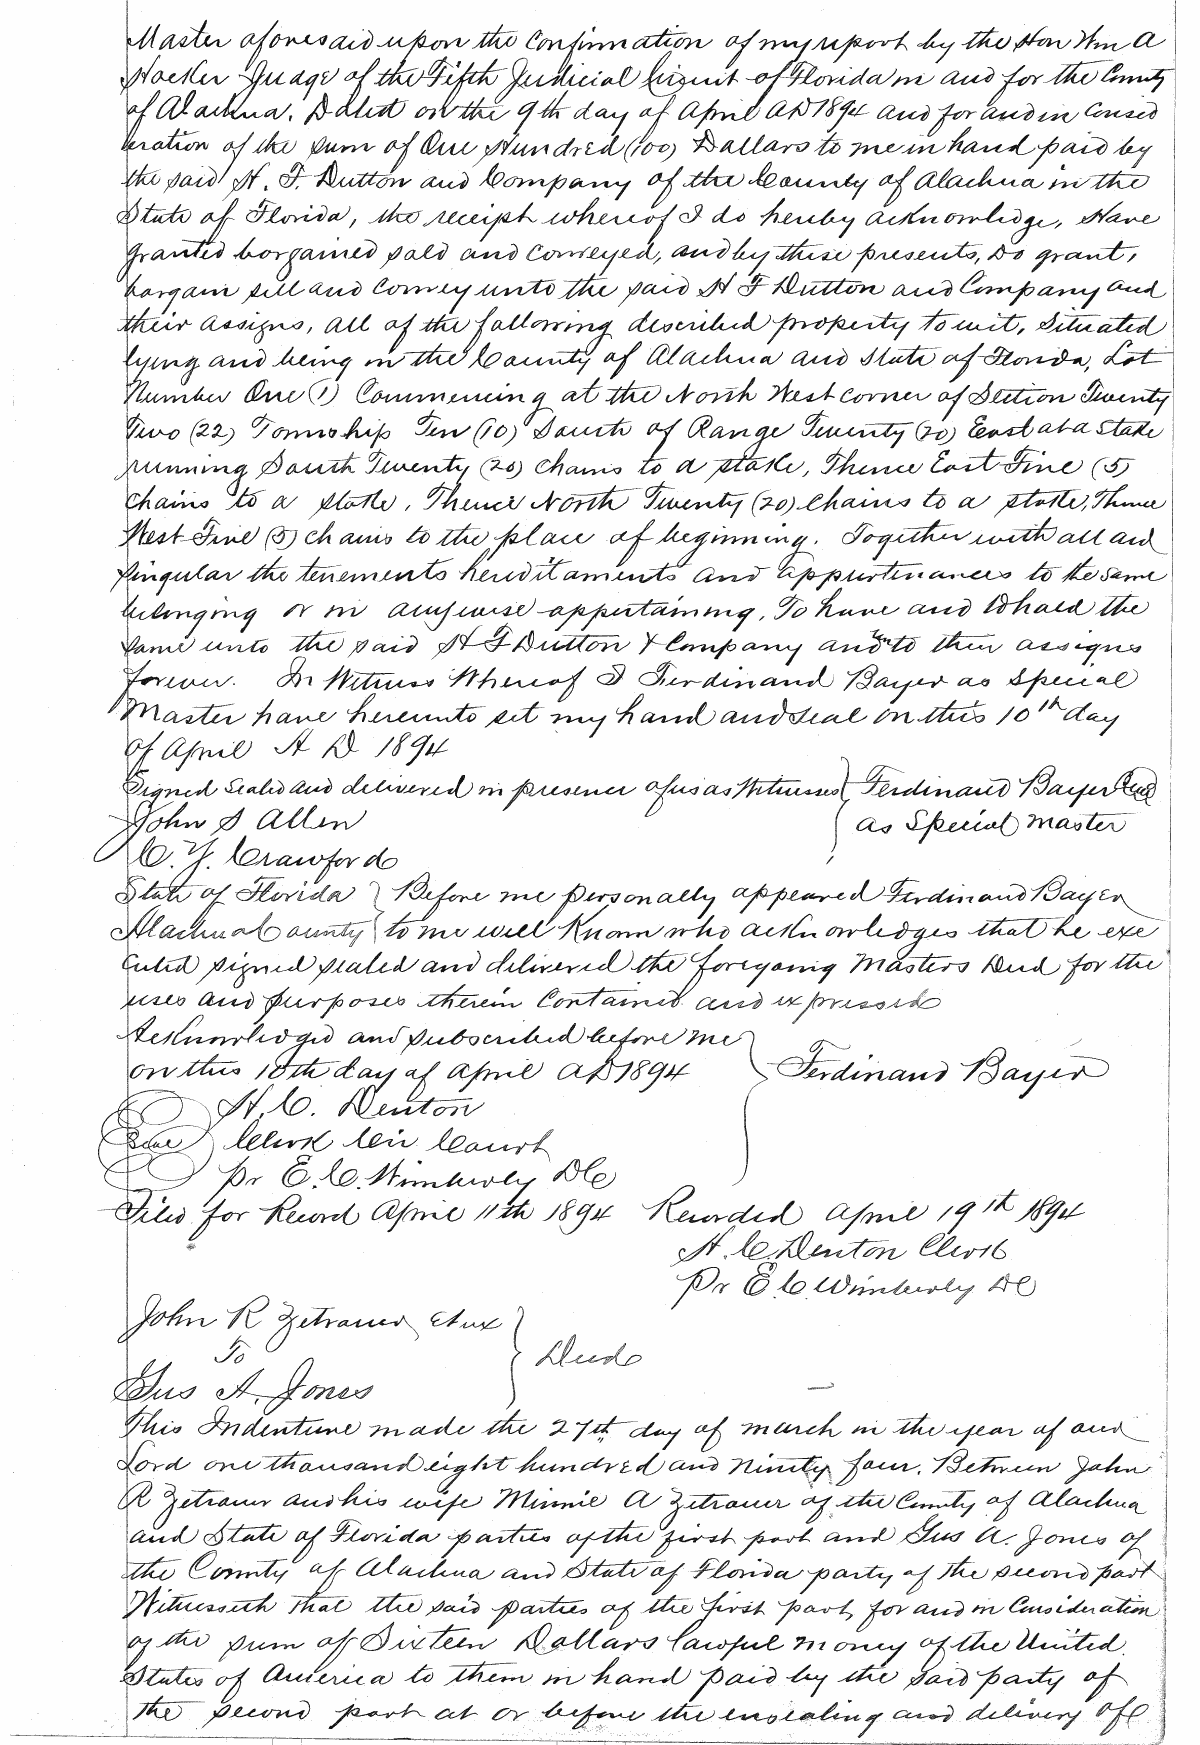 Master aforesaid upon the Confirmation of my report by the Hon Wm A
Hocker Judge of the Fifth Judicial Circuit of Florida in and for the County
of Alachua. Dated on the 9th day of April AD 1894 and for and in Consid
eration of the sum of One Hundred (100) Dallars to me in hand paid by
the said H. F. Dutton and Company of the County of Alachua in the
State of Florida, the receipt whereof I do hereby acknowledge, Have
granted bargained sold and Conveyed, and by these presents, Do grant,
bargain sell and Convey unto the said H F Dutton and Company and
their assigns, all of the following described property to wit, Situated
lying and being in the County of Alachua and State of Florida, Lot
Number One (1) Commencing at the North West corner of Section Twenty
Two (22) Township Ten (10) South of Range Twenty (20) East at a Stake
running South Twenty (20) chains to a stake, Thence East Five (5)
Chains to a stake, Thence North Twenty (20) Chains to a stake, Thence
West Five (5) chains to the place of beginning. Together with all and
singular the tenements hereditaments and appurtinances to the same
belonging or in anywise appertaining, To have and to hold the
same unto the said H F Dutton & Company and to their assigns
forever. In Witness Whereof I Ferdinand Bayer as Special
Master have hereunto set my hand and seal on this 10th day
of April A D 1894
Signed Sealed and delivered in presence of us as Witnesses } Ferdinand Bayer Seal
John S Allen as Special Master
C. Y. Crawford
State of Florida } Before me personally appeared Ferdinand Bayer
Alachua County } to me well Known who acknowledges that he exe
cuted signed sealed and delivered the foregoing Masters Deed for the
uses and purposes therein Contained and expressed
Acknowledged and subscribed before me
on this 10th day of April AD 1894 } Ferdinand Bayer
H. C. Denton
Seal Clerk Cir Court
Pr E. C. Wimberly DC
Filed for Record April 11th 1894 Recorded April 19th 1894
H. C. Denton Clerk
Pr E C Wimberly DC
John R Zetrouer et ux
To } Deed
Gus A. Jones
This Indenture made the 27th day of March in the year of our
Lord one thousand eight hundred and Ninety four. Between John
R Zetrouer and his wife Minnie A Zetrouer of the County of Alachua
and State of Florida parties of the first part and Gus A. Jones of
the County of Alachua and State of Florida party of the second part
Witnesseth that the said parties of the first part, for and in Consideration
of the sum of Sixteen Dollars lawful money of the United
States of America to them in hand paid by the said party of
the second part at or before the ensealing and delivery of